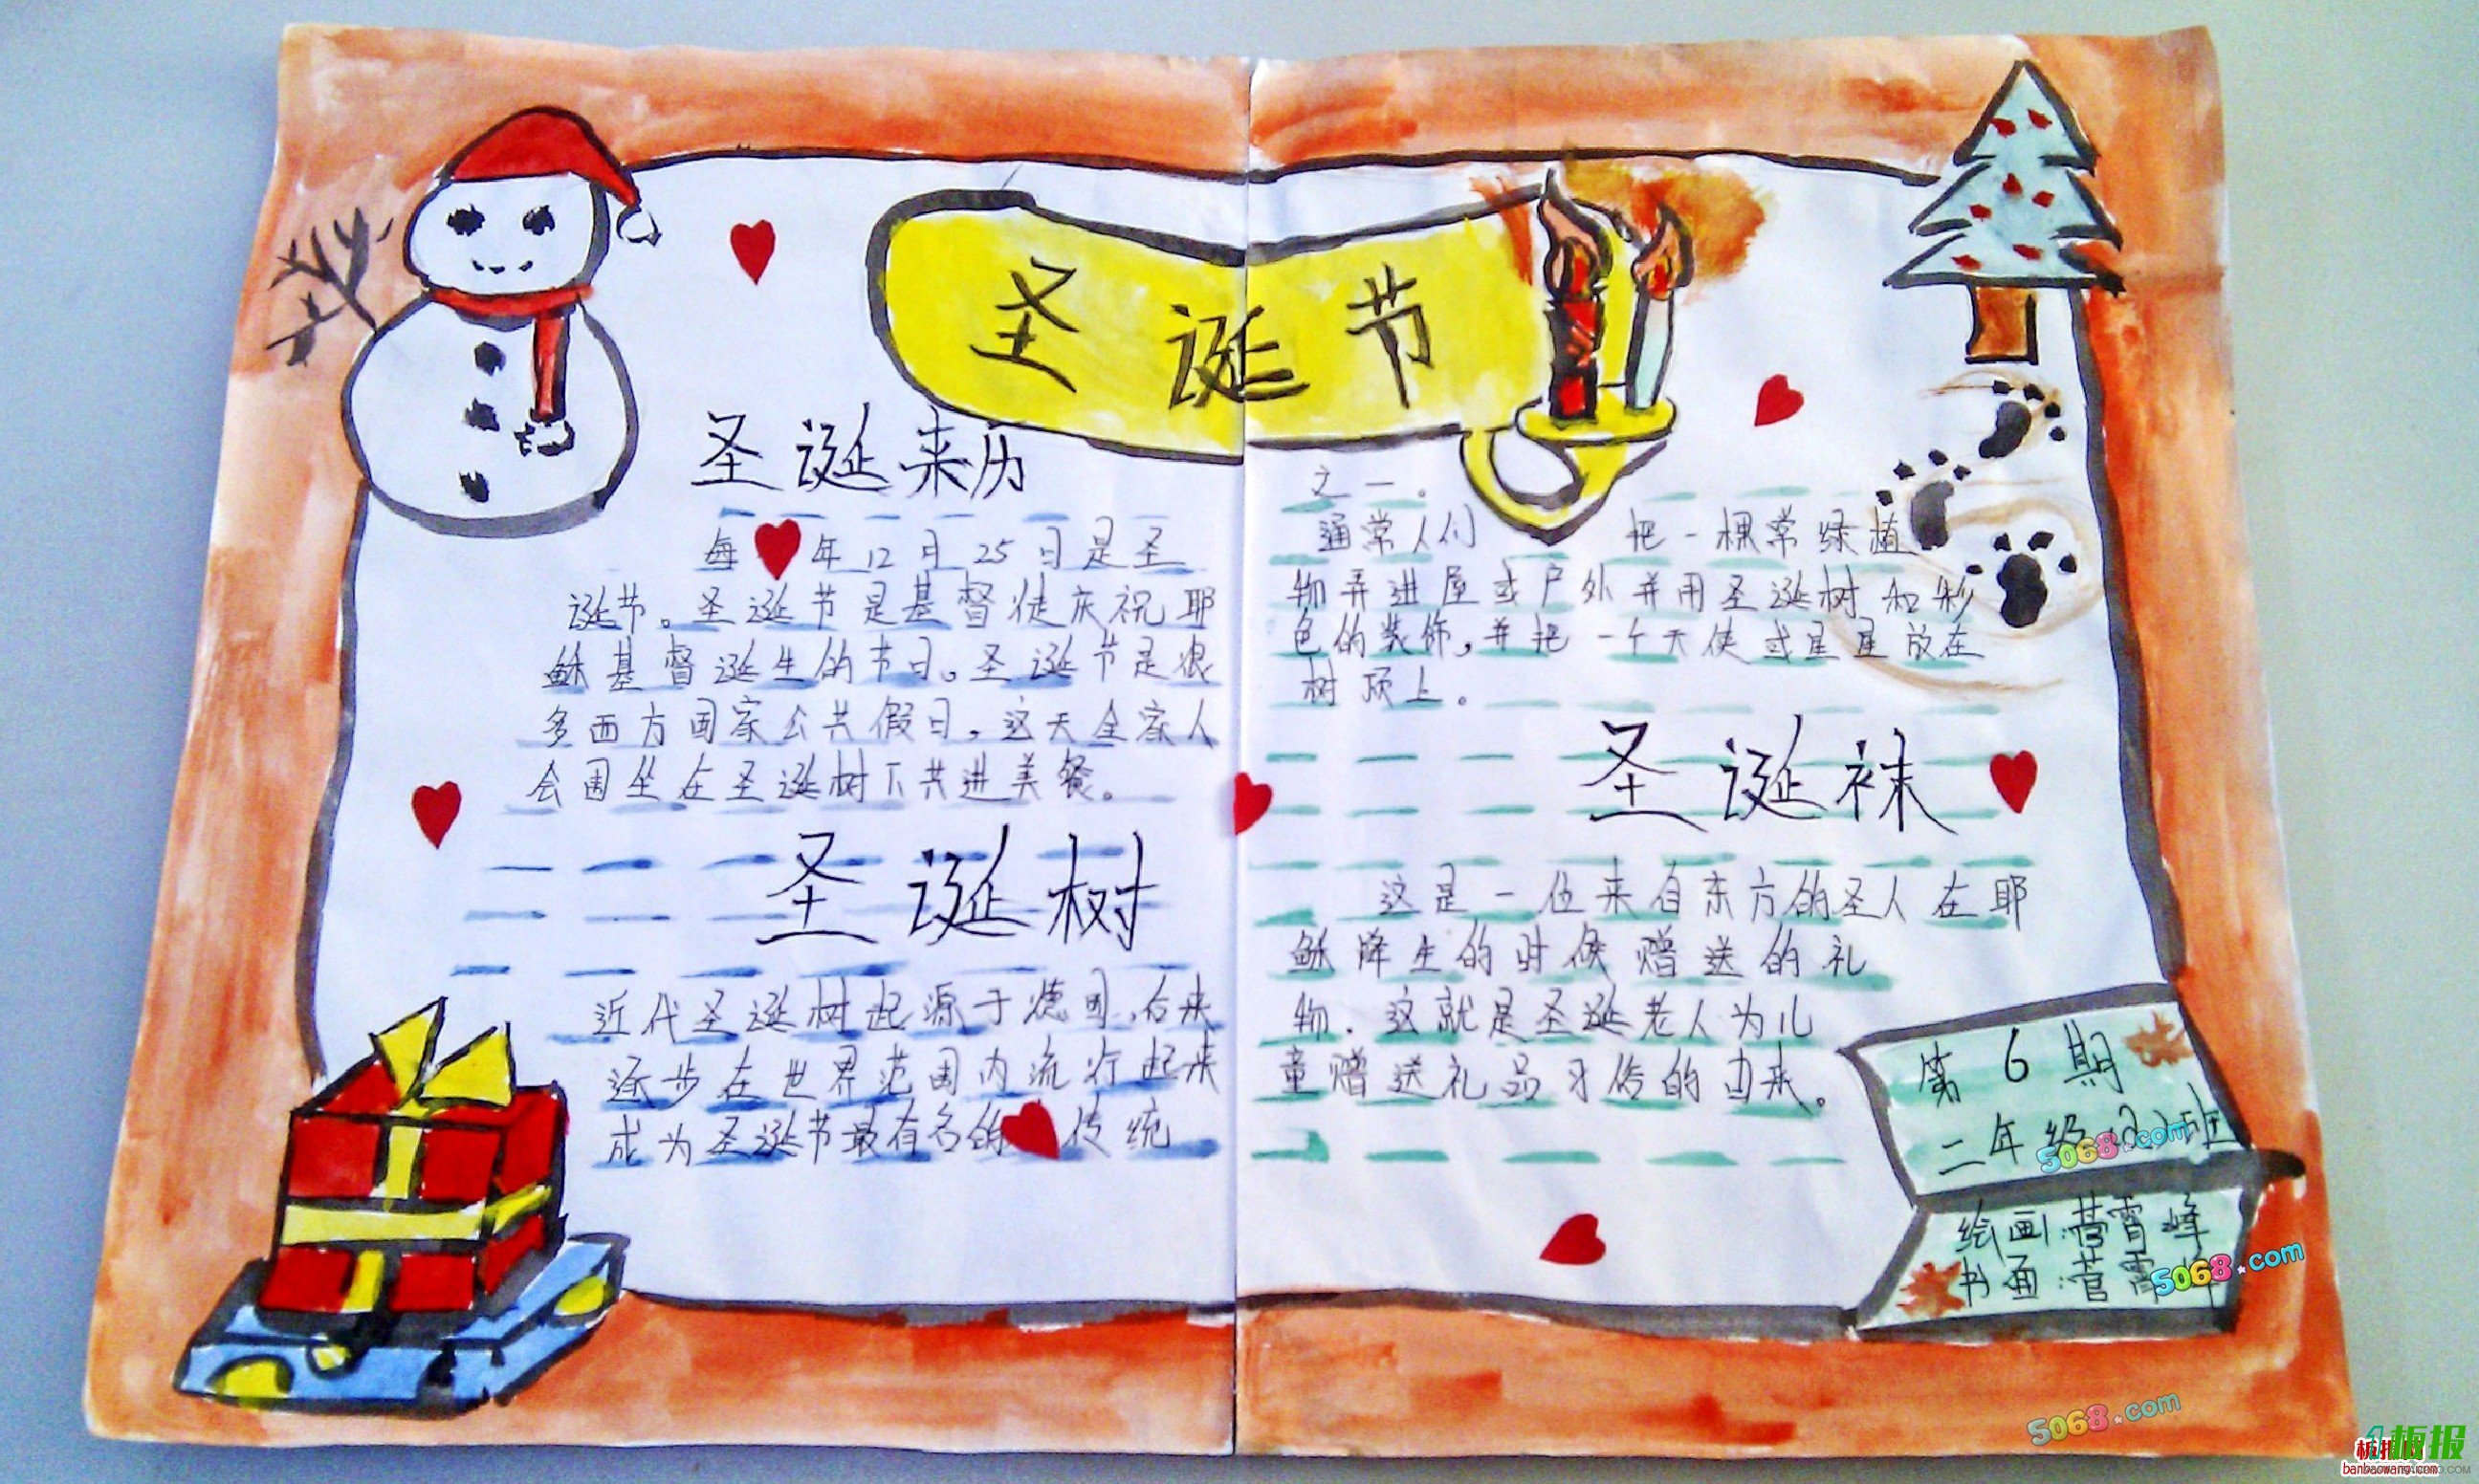 圣诞节
圣诞来历
每年12月25日是圣
诞节。圣诞节是基督徒庆祝耶
稣基督诞生的节日。圣诞节是很
多西方国家公共假日,这天全家人
会围坐在圣诞树下共进美餐。
圣诞树
近代圣诞树起源于德国,后来
逐步在世界范围内流行起来
成为圣诞节最有名的传统
之一。
通常人们把一棵常绿植
物弄进屋或户外并用圣诞树和彩
色的装饰,并把一个天使或星星放在
树顶上。
圣诞袜
这是一位来自东方的圣人在耶
稣降生的时候赠送的礼
物.这就是圣诞老人为儿
童赠送礼品习俗的由来。
第6期
二年级
班
绘画:霄峰
书画:
5068.com
5068.com
5068.com
板报
banbaowang.com